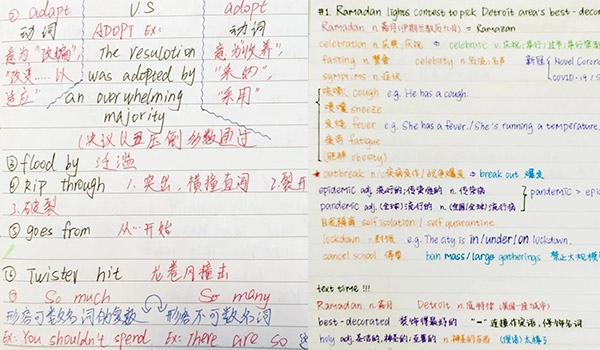 ① adapt VS adopt
动词 ADOPT Ex: 动词
意为“改编” The resulotion 意为“收养”,
“改变……以 was adopted by “采纳”,
适应” an overwhelming “采用”
majority
(决议以压倒多数通过
③ flood by 泛滥
④ Rip through 1. 突出, 横撞直闯 2. 裂开
3. 破裂
⑤ goes from 从…开始
⑥ Twister hit 龙卷风撞击
So much So many
形容可数名词的复数 形容不可数名词
Ex: You shouldn't spend Ex: There are so
#1. Ramadan lights contest to pick Detroit area's best-decor
Ramadan n. 斋月 = Ramazan
celebration n. 庆典, 庆祝 ⇒ celebrate v. 庆祝; 举行
fasting n. 禁食 celebrity n. 名流, 名声 新冠 Novel Corona
symptoms n. 症状 COVID-19 / S
咳嗽 cough e.g. He has a cough.
喷嚏 sneeze
发烧 fever e.g. She has a fever. / She's running a temperature.
疲劳 fatigue
(肥胖 obesity)
★ outbreak n. 疾病发作/战争爆发 ⇒ break out 爆发
epidemic adj. 流行的; 传染性的 n. 传染病
pandemic adj. (全球)流行的 n. (全国/全球)流行病 pandemic > epid
自我隔离 self isolation / self quarantine
lockdown n. 封锁 e.g. The city is in/under/on lockdown.
cancel school 停课 ban mass/large gatherings 禁止大规模
text time !!!
Ramadan n. 斋月 Detroit n. 底特律 (美国一座城市)
best-decorated 装饰得最好的 "-" 连接作定语, 修饰名词
holy adj. 圣洁的, 神圣的; 至善的 n. 神圣的东西